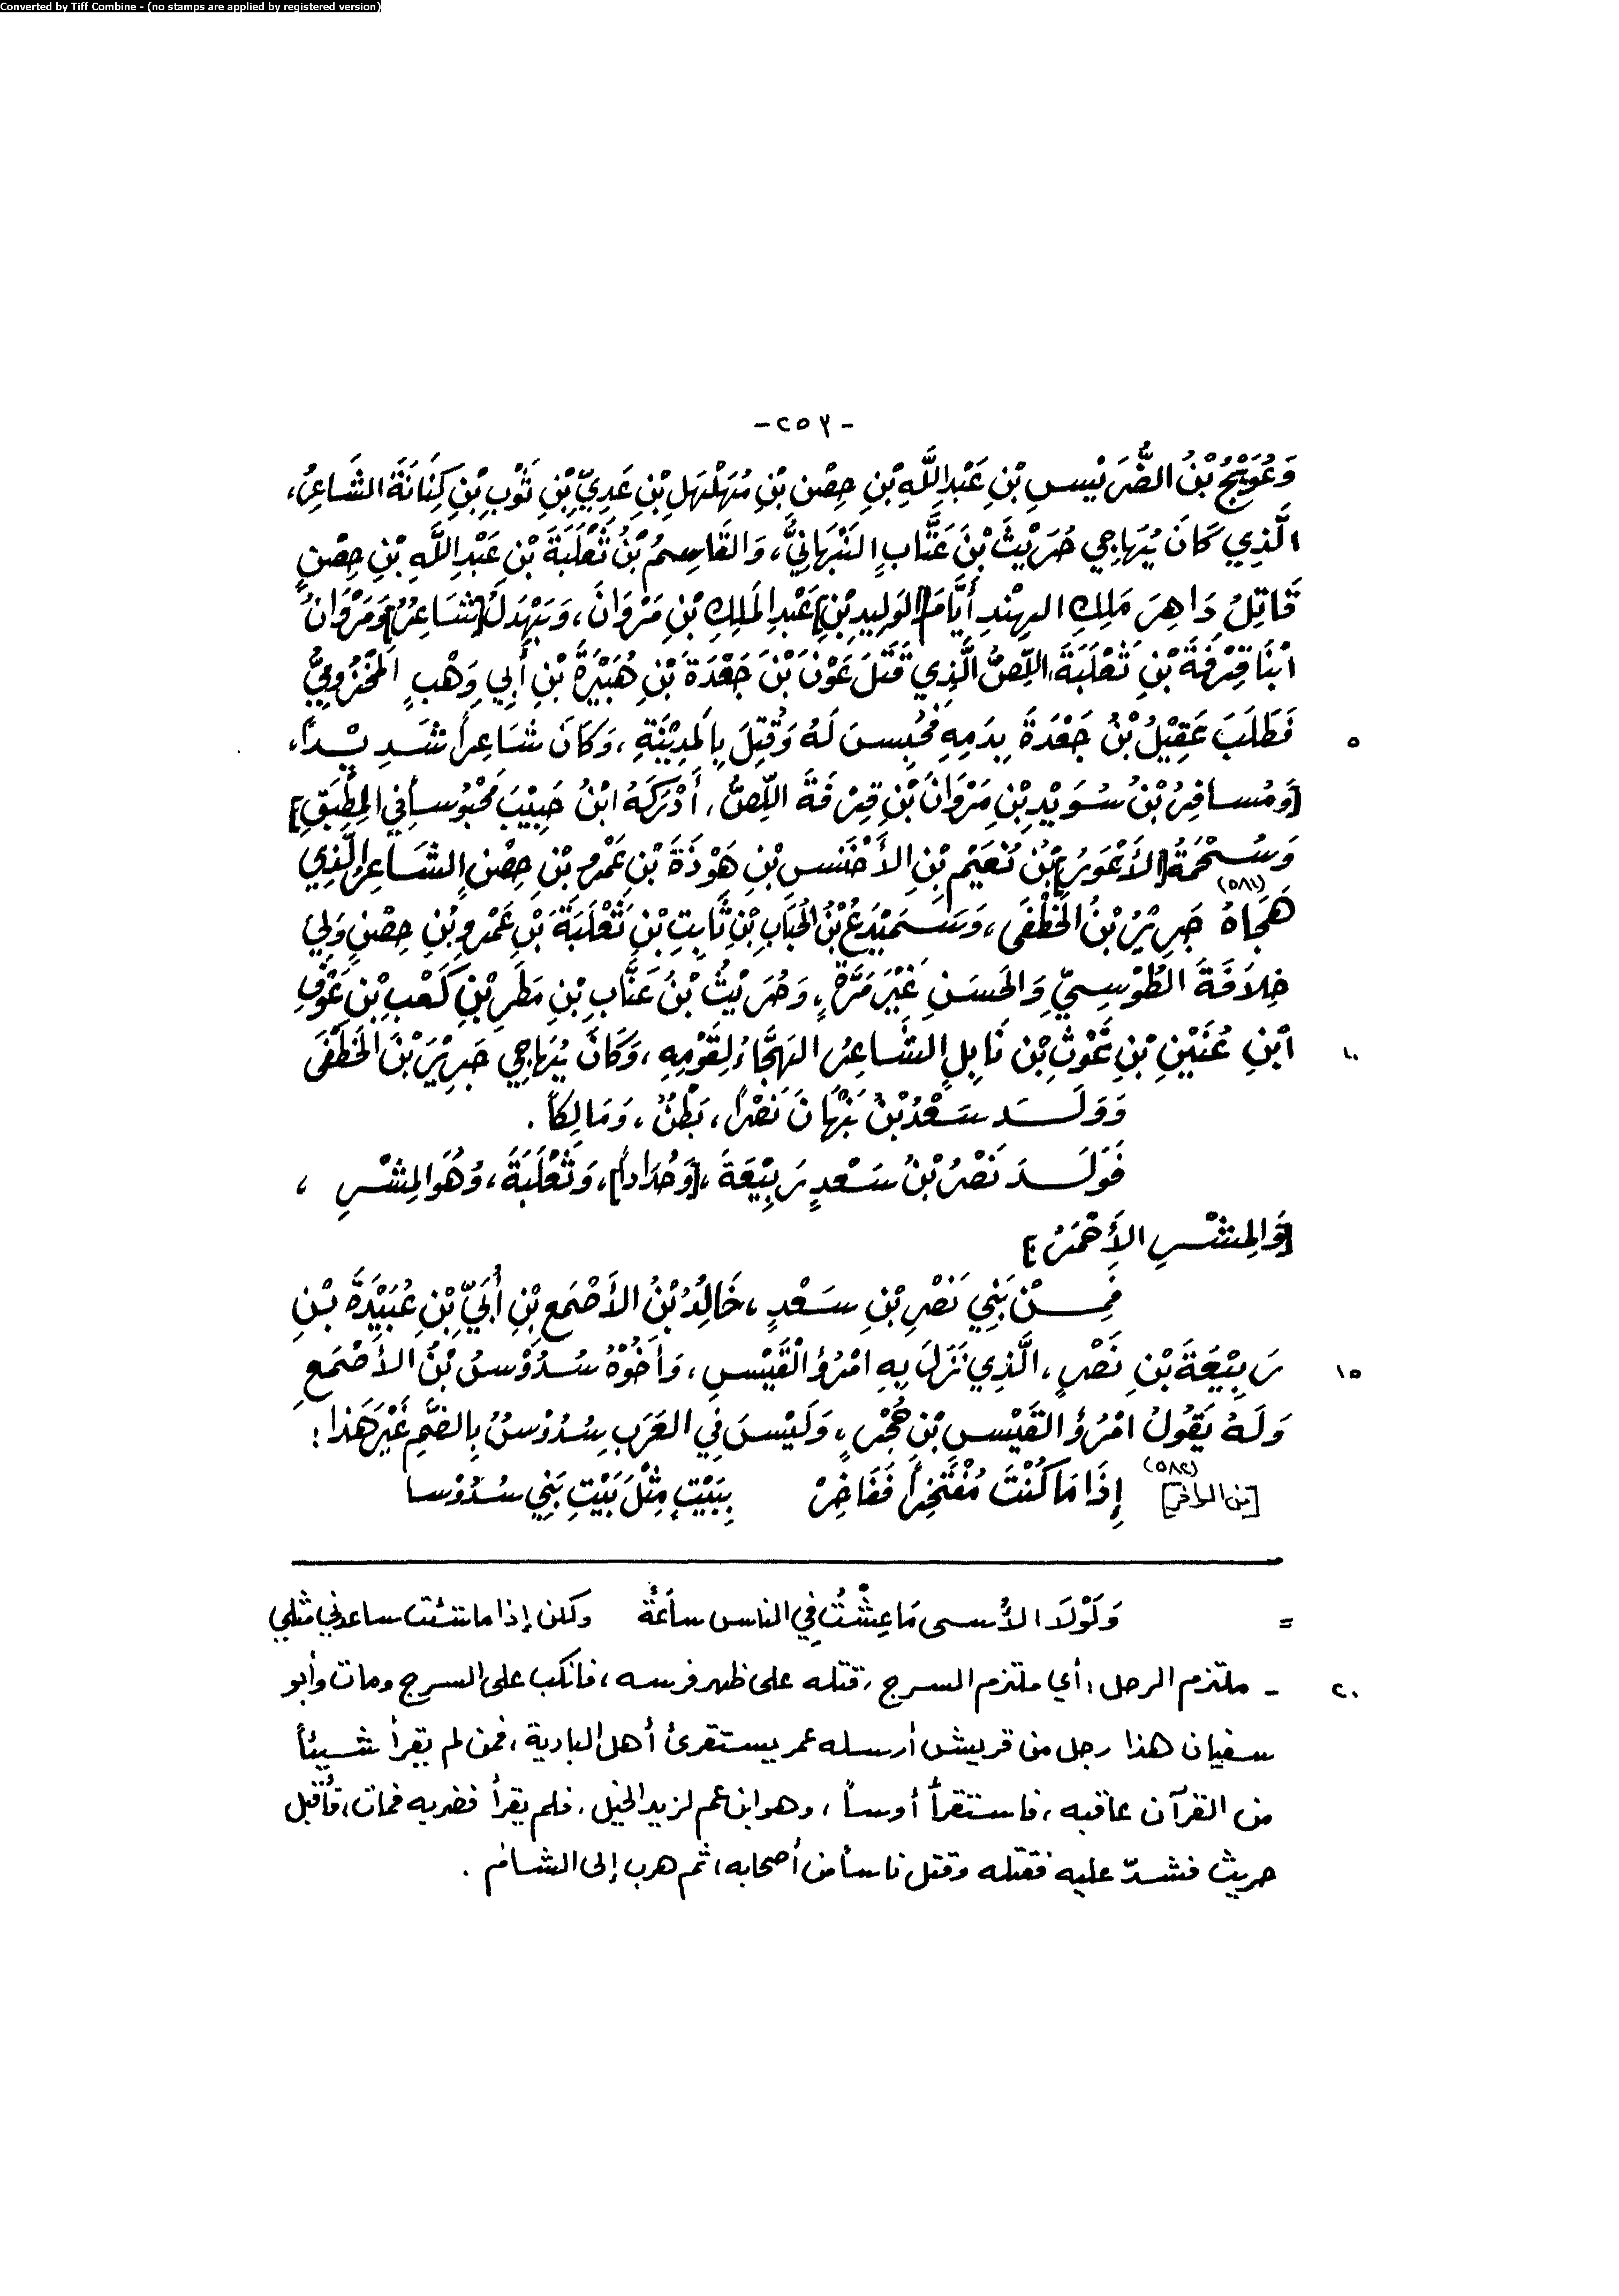 Converted by Tiff Combine - (no stamps are applied by registered version)
- ٢٥٣ -
وَعُوَيْجُ بْنُ الضُّرَيْسِ بْنِ عَبْدِ اللَّهِ بْنِ حِصْنِ بْنِ مُهَلْهَلِ بْنِ عَدِيِّ بْنِ ثَوْبِ بْنِ كِنَانَةَ الشَّاعِرُ،
الَّذِي كَانَ يُهَاجِي حُرَيْثَ بْنَ عَتَّابٍ النَّبْهَانِيَّ، وَالقَاسِمُ بْنُ ثَعْلَبَةَ بْنِ عَبْدِ اللَّهِ بْنِ حِصْنٍ
قَاتِلُ دَاهِرَ مَلِكِ الهِنْدِ أَيَّامَ [الوَلِيدِ بْنِ] عَبْدِ المَلِكِ بْنِ مَرْوَانَ، وَبَهْدَلُ [شَاعِرٌ] وَمَرْوَانُ
ابْنَا قِرْفَةَ بْنِ ثَعْلَبَةَ، اللِّصُّ الَّذِي قَتَلَ عَوْنَ بْنَ جَعْدَةَ بْنِ هُبَيْرَةَ بْنِ أَبِي وَهْبٍ المَخْزُومِيَّ
فَطَلَبَ عَقِيْلُ بْنُ جَعْدَةَ بِدَمِهِ فَحُبِسَ لَهُ وَقُتِلَ بِالمَدِيْنَةِ، وَكَانَ شَاعِراً شَدِيْداً، ٥
[وَمُسَافِرُ بْنُ سُوَيْدِ بْنِ مَرْوَانَ بْنِ قِرْفَةَ اللِّصُّ، أَدْرَكَهُ ابْنُ حَبِيْبَ مَحْبُوساً فِي المِطْبَقِ]
وَسُحْمَةُ [الأَعْوَرُ] بْنُ نُعَيْمِ بْنِ الأَخْنَسِ بْنِ هَوْذَةَ بْنِ عَمْرِو بْنِ حِصْنٍ الشَّاعِرُ الَّذِي
هَجَاهُ (٥٨١) جَرِيْرُ بْنُ الخَطَفَى، وَسَمَيْدَعُ بْنُ الحُبَابِ بْنِ ثَابِتِ بْنِ ثَعْلَبَةَ بْنِ عَمْرِو بْنِ حِصْنٍ وَلِيَ
خِلَافَةَ الطُوْسِيِّ وَالحَسَنِ غَيْرَ مَرَّةٍ، وَحُرَيْثُ بْنُ عَنَّابِ بْنِ مَطَرِ بْنِ كَعْبِ بْنِ عَوْفِ
ابْنِ عُنَيْنِ بْنِ غَوْثِ بْنِ نَابِلٍ الشَّاعِرُ الهَجَّاءُ لِقَوْمِهِ، وَكَانَ يُهَاجِي جَرِيْرَ بْنَ الخَطَفَى ١٠
وَوَلَدَ سَعْدُ بْنُ نَبْهَانَ نَصْراً، بَطْنٌ، وَمَالِكاً.
فَوَلَدَ نَصْرُ بْنُ سَعْدٍ رَبِيْعَةَ، [وَحُدَاداً]، وَثَعْلَبَةَ، وَهُوَ المِشْرُ،
[وَالمِشْرُ الأَحْمَرُ]
فَمِنْ بَنِي نَصْرِ بْنِ سَعْدٍ، خَالِدُ بْنُ الأَصْمَعِ بْنِ أُبَيِّ بْنِ عُبَيْدَةَ بْنِ
رَبِيْعَةَ بْنِ نَصْرٍ، الَّذِي نَزَلَ بِهِ امْرُؤُ الْقَيْسِ، وَأَخُوْهُ سُدُوْسُ بْنُ الأَصْمَعِ ١٥
وَلَهُ يَقُولُ امْرُؤُ القَيْسِ بْنِ حُجْرٍ، وَلَيْسَ فِي العَرَبِ سُدُوْسٌ بِالضَّمِّ غَيْرَ هَذَا:
[من الوافر] (٥٨٢) إِذَا مَا كُنْتَ مُفْتَخِراً فَفَاخِرْ بِبَيْتٍ مِثْلَ بَيْتِ بَنِي سُدُوْسا
= وَلَوْلَا الأُسى مَا عِشْتُ فِي الناس ساعَةً ولكن إذا ما شئت ساعدني مثلي
- ملتزم الرحل: أي ملتزم السرج، قتله على ظهر فرسه، فانكب على السرج ومات وأبو ٢٠
سفيان هذا رجل من قريش أرسله عمر يستقرئ أهل البادية، فمن لم يقرأ شيئاً
من القرآن عاقبه، فاستقرأ أوساً، وهو ابن عم لزيد الخيل، فلم يقرأ فضربه فمات، فأقبل
حريث فشدّ عليه فقتله وقتل ناساً من أصحابه، ثم هرب إلى الشام.